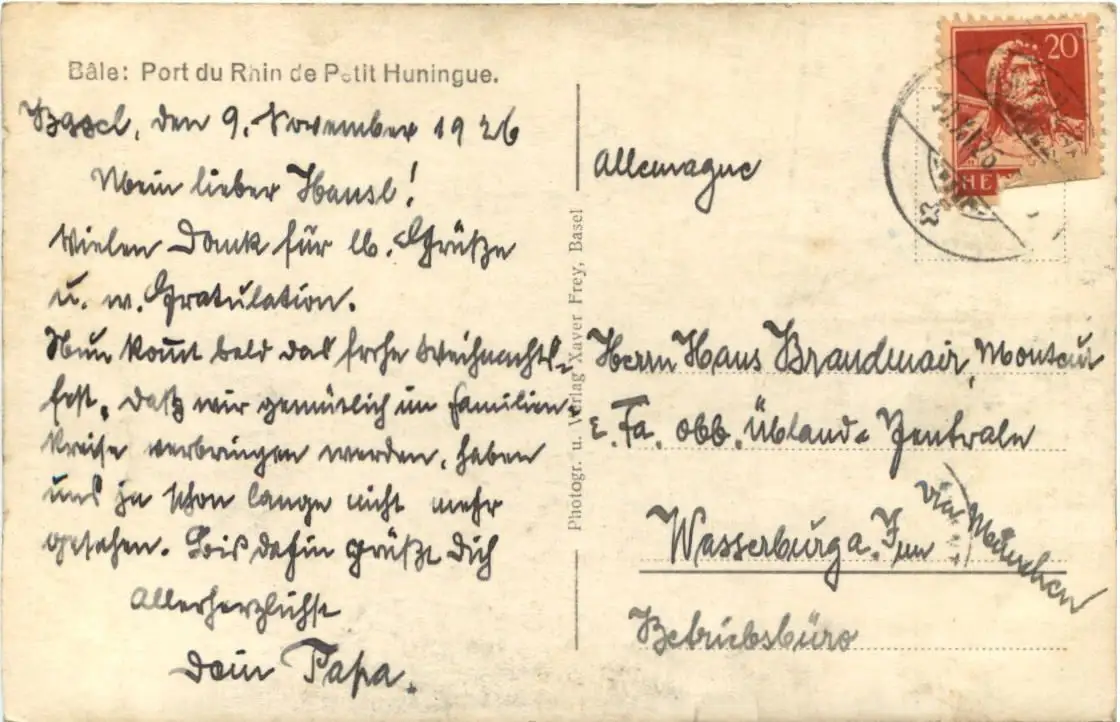 Bâle: Port du Rhin de Petit Huningue.
Basel, den 9. November 1926
Mein lieber Hansl!
Vielen Dank für lb. Grüße
u. w. Gratulation.
Nun kom̅t bald das frohe Weihnachts-
fest, daß wir gemütlich im Familien-
kreise verbringen werden, haben
uns ja schon lange nicht mehr
gesehen. Bis dahin grüßt Dich
Allerherzlichst
Dein Papa.
Photogr. u. Verlag Xaver Frey, Basel
20
HE
Allemagne
Herrn Hans Brandmair, Monteur
Fa. Obb. Übland-Zentrale
Wasserburg a. Inn
via München
Betriebsbüro